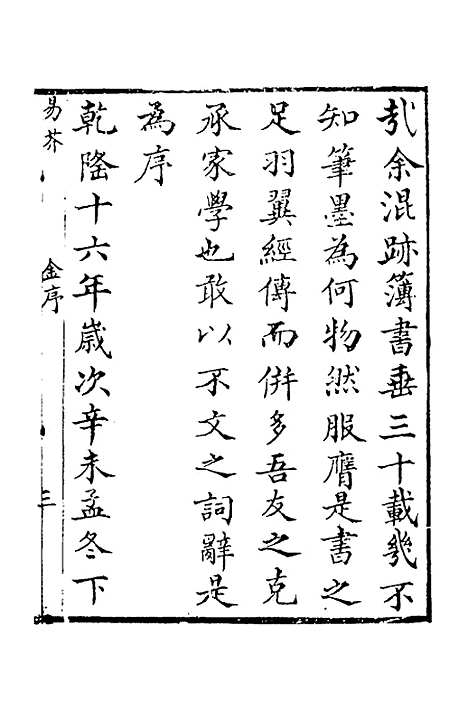 哉余混跡簿書垂三十載幾不
知筆墨為何物然服膺是書之
足羽翼經傳而併多吾友之克
承家學也敢以不文之詞辭是
為序
乾隆十六年歲次辛未孟冬下
易芥 金序 三